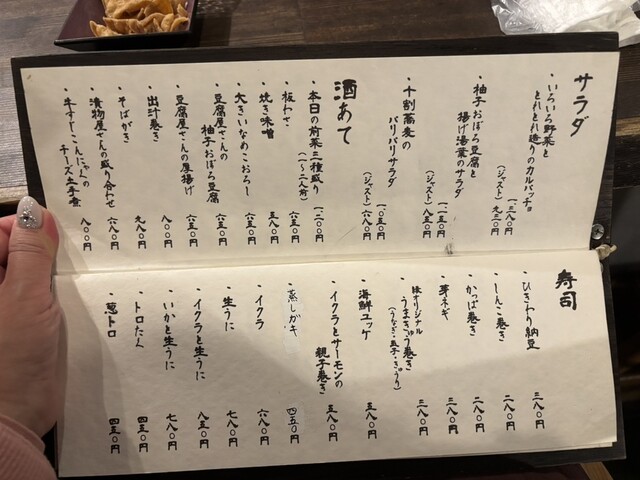 サラダ
・いろいろ野菜と
とれとれ造りのカルパッチョ
一三八〇円
(ジャスト) 九三〇円
・柚子おぼろ豆腐と
揚げ湯葉のサラダ
一二五〇円
(ジャスト) 八五〇円
・十割蕎麦の
パリパリサラダ
一〇五〇円
(ジャスト) 六八〇円
酒あて
・本日の前菜三種盛り
(一〜二人前) 一二〇〇円
・板わさ 六五〇円
・焼き味噌 五八〇円
・大きいなめこおろし 六五〇円
・豆腐屋さんの
柚子おぼろ豆腐 六五〇円
・豆腐屋さんの厚揚げ 八〇〇円
・出汁巻き 九八〇円
・そばがき 八八〇円
・漬物屋さんの盛り合わせ 六八〇円
・牛すじこんにゃくの
チーズ土手煮 八〇〇円
寿司
・ひきわり納豆 三八〇円
・しんこ巻き 二八〇円
・かっぱ巻き 二八〇円
・芽ネギ 三八〇円
・オリジナル
うまきゅう巻き
(うなぎ・玉子・きゅうり) 三八〇円
・海鮮ユッケ 五八〇円
・イクラとサーモンの
親子巻き 五八〇円
・蒸しガキ 四五〇円
・イクラ 六八〇円
・生うに 七八〇円
・イクラと生うに 八五〇円
・いかと生うに 七八〇円
・トロたく 四五〇円
・葱トロ 四五〇円